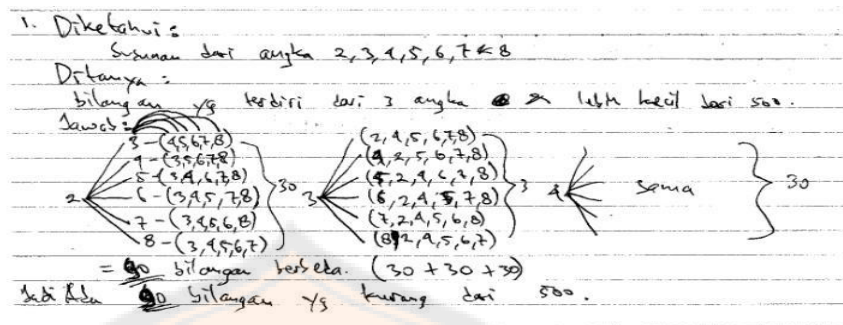 1. Diketahui :
Susunan dari angka 2,3,4,5,6,7 & 8
Ditanya :
bilangan yg terdiri dari 3 angka lebih kecil dari 500.
Jawab :
2 3 - (4,5,6,7,8)
4 - (3,5,6,7,8)
5 - (3,4,6,7,8)
6 - (3,4,5,7,8)
7 - (3,4,5,6,8)
8 - (3,4,5,6,7)
30
3 (2,4,5,6,7,8)
(4,2,5,6,7,8)
(5,2,4,6,7,8)
(6,2,4,5,7,8)
(7,2,4,5,6,8)
(8,2,4,5,6,7)
3
4 sama 30
= 90 bilangan berbeda. (30 + 30 + 30)
Jadi Ada 90 bilangan yg kurang dari 500.